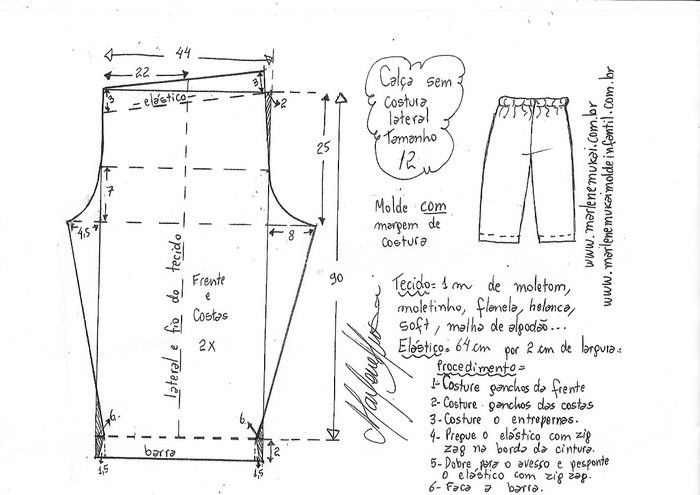 44
22
3
3
elástico
2
25
7
4,5
8
90
lateral e fio do tecido
Frente
e
Costas
2X
6
6
barra
2
1,5
1,5
Calça sem
costura
lateral
Tamanho
12
Molde com
margem de
costura
www.marlenemukai.com.br
www.marlenemukaimoldeinfantil.com.br
Tecido= 1m de moletom,
moletinho, flanela, helanca,
soft, malha de algodão...
Elástico= 64cm por 2 cm de largura.
Procedimento=
1- Costure ganchos da frente
2- Costure ganchos das costas
3- Costure o entrepernas.
4- Pregue o elástico com zig
zag na borda da cintura.
5- Dobre para o avesso e pesponte
o elástico com zig zag.
6- Faca a barra.